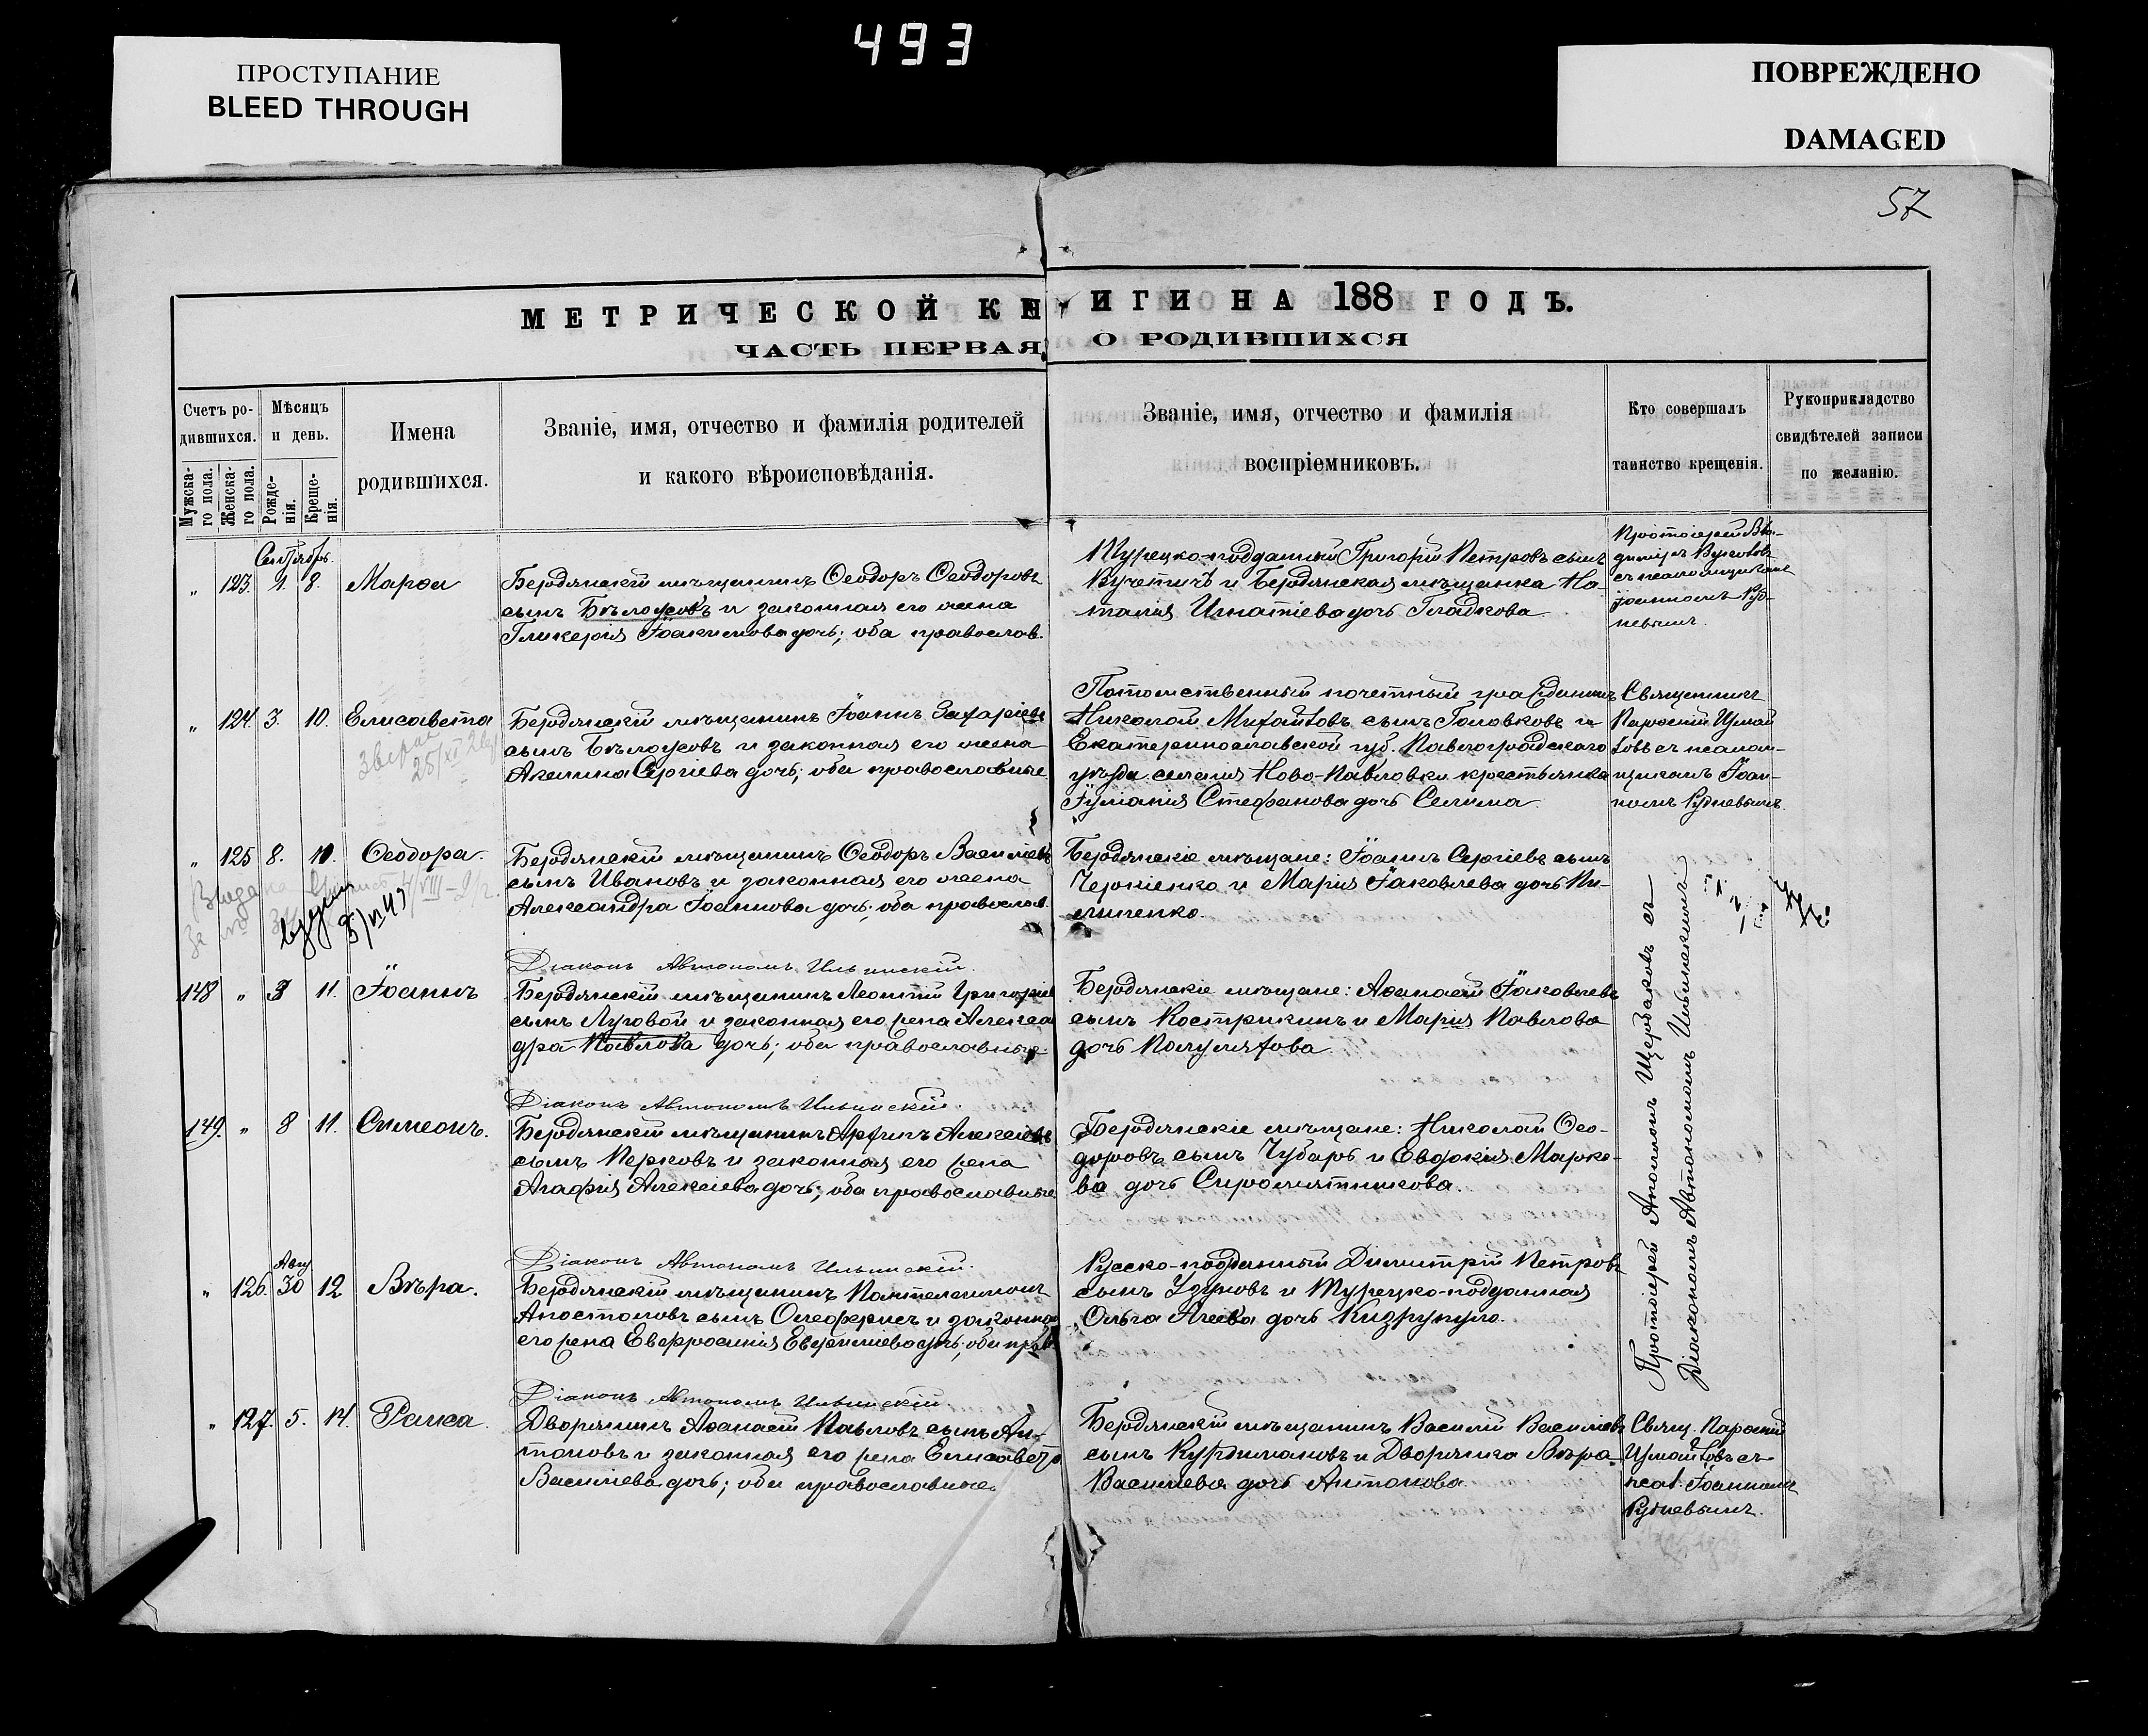 493
ПРОСТУПАНИЕ
BLEED THROUGH
ПОВРЕЖДЕНО
DAMAGED
57
МЕТРИЧЕСКОЙ КНИГИ НА 188 ГОДЪ.
ЧАСТЬ ПЕРВАЯ, О РОДИВШИХСЯ
Счетъ ро-
дившихся.
Мужска-
го пола.
Женска-
го пола.
Мѣсяцъ
и день.
Рожде-
нія.
Креще-
нія.
Имена
родившихся.
Званіе, имя, отчество и фамилія родителей
и какого вѣроисповѣданія.
Званіе, имя, отчество и фамилія
воспріемниковъ.
Кто совершалъ
таинство крещенія.
Рукоприкладство
свидѣтелей записи
по желанію.
Сентябрь.
„ 123. 1. 8. Марѳа
Бердянскій мѣщанинъ Ѳеодоръ Ѳеодоровъ
сынъ Бѣлоусовъ и законная его жена
Гликерія Іоакимова дочь; оба православ.
Турецко-подданный Григорій Петровъ сынъ
Вучетичъ и Бердянская мѣщанка На-
талія Игнатіева дочь Гладкова.
Протоіерей Вла-
диміръ
съ псаломщикомъ
Іоанномъ Руд-
невымъ.
„ 124. 3. 10. Елисавета
Бердянскій мѣщанинъ Іоаннъ Захаріевъ
сынъ Бѣлоусовъ и законная его жена
Акелина Сергіева дочь; оба православные
Потомственный почетный гражданинъ
Николай Михайловъ сынъ Головковъ и
Екатеринославской губ. Павлоградскаго
уѣзда селенія Ново-Павловки крестьянка
Іуліанія Стефанова дочь Селима
Священникъ
Парѳеній Измаи
ловъ съ псалом-
щикомъ Іоан-
номъ Рудневымъ.
„ 125 8. 10. Ѳеодора.
Бердянскій мѣщанинъ Ѳеодоръ Васильевъ
сынъ Ивановъ и законная его жена
Александра Іоаннова дочь; оба православ.
Бердянскіе мѣщане: Іоаннъ Сергіевъ сынъ
Черніенко и Марія Іаковлева дочь Пи-
липенко.
Діаконъ Автономъ Ильинскій.
148 „ 3 11. Іоаннъ
Бердянскій мѣщанинъ Леонтій Григоріев
сынъ Луговой и законная его жена Алексан
дра Павлова дочь; оба православные
Бердянскіе мѣщане: Аѳанасій Іаковлевъ
сынъ Кострикинъ и Марія Павлова
дочь Полуляхова.
Діаконъ Автономъ Ильинскій.
149. „ 8 11. Симеонъ.
Бердянскій мѣщанинъ Архипъ Алексіевъ
сынъ Перковъ и законная его жена
Агафія Алексіева дочь; оба православные
Бердянскіе мѣщане: Николай Ѳео-
доровъ сынъ Чубарь и Евдокія Марко-
ва дочь Сыромятникова.
Діаконъ Автономъ Ильинскій.
Авг.
„ 126. 30 12 Вѣра.
Бердянскій мѣщанинъ Пантелеимонъ
Апостоловъ сынъ и законная
его жена Евфросинія Евфиміева дочь; оба прав.
Русско-подданный Димитрій Петровъ
сынъ Узуновъ и Турецко-подданная
Ольга Агеева дочь
Протоіерей Аполлонъ Щербаковъ съ
Діакономъ Автономомъ Ильинскимъ
Діаконъ Автономъ Ильинскій.
„ 127. 5. 14. Раиса.
Дворянинъ Аѳанасій Павловъ сынъ Ан-
тоновъ и законная его жена Елисавета
Васильева дочь; оба православные.
Бердянскій мѣщанинъ Василій Васильевъ
сынъ Курдимановъ и Дворянка Вѣра
Васильева дочь Антонова.
Свящ. Парѳеній
Измаиловъ съ
псал. Іоанномъ
Рудневымъ.